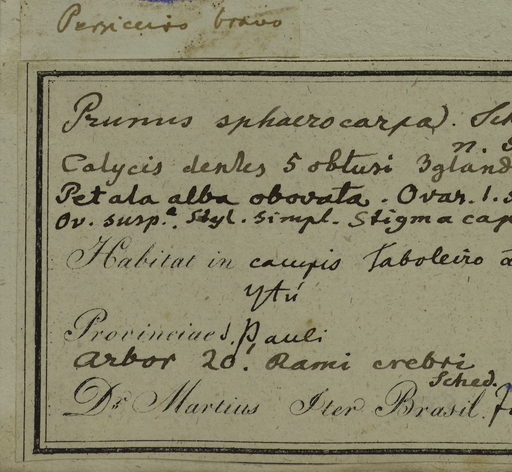 Persiceiro bravo
Prunus sphaerocarpa. Sch
n.
Calycis dentes 5 obtusi 3gland
Petala alba obovata. Ovar. 1. s
Ov. suspᵃ. Styl. simpl. Stigma cap
Habitat in campis Taboleiro
Ytú
Provinciae S. Pauli
Arbor 20'. Rami crebri
Sched.
Dr Martius Iter Brasil.